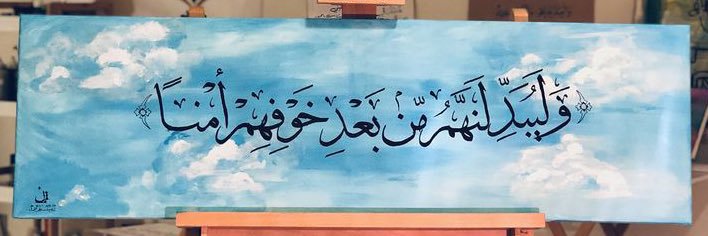 وَلَيُبَدِّلَنَّهُم مِّن بَعْدِ خَوْفِهِمْ أَمْنًا